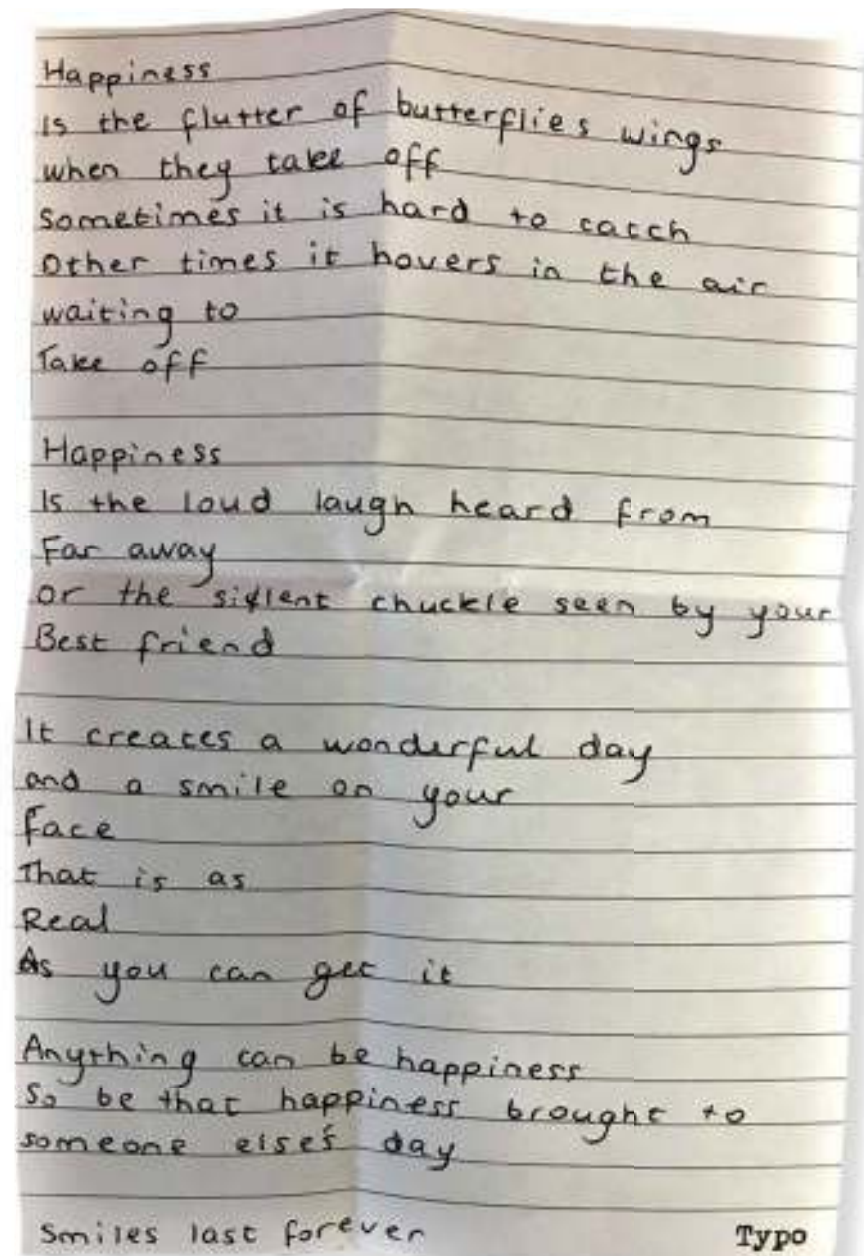 Happiness
Is the flutter of butterflies wings
when they take off
Sometimes it is hard to catch
Other times it hovers in the air
waiting to
Take off
Happiness
Is the loud laugh heard from
Far away
or the silent chuckle seen by your
Best friend
It creates a wonderful day
and a smile on your
face
That is as
Real
As you can get it
Anything can be happiness
So be that happiness brought to
someone else's day
Smiles last forever
Typo